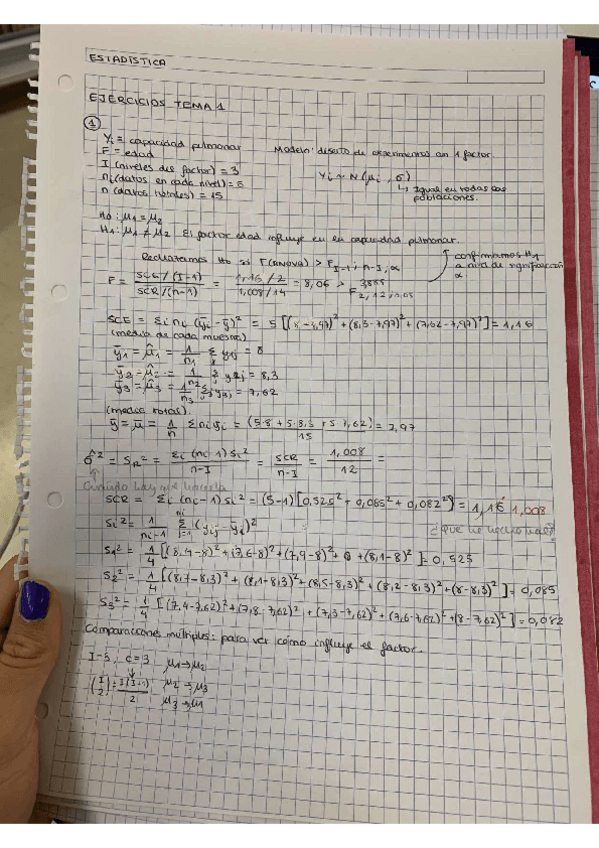 ESTADÍSTICA
EJERCICIOS TEMA 1
①
Yi = capacidad pulmonar
F = edad
Modelo: diseño de experimentos con 1 factor
I (niveles del factor) = 3
ni (datos en cada nivel) = 5
Yi ~ N(μi, σ)
n (datos totales) = 15
↳ Igual en todas las poblaciones.
H0: μ1 = μ2
H1: μ1 ≠ μ2 El factor edad influye en la capacidad pulmonar.
Rechazamos H0 si F(anova) > F I-1; n-I, α
confirmamos H1 a nivel de significación α.
F = SCE/(I-1) / SCR/(n-1) = 1,16/2 / 1,008/14 = 8,06 > F 2,12,0.05
SCE = Σi ni (ȳi - ȳ)² = 5[(8-7,97)² + (8,3-7,97)² + (7,62-7,97)²] = 1,16
(media de cada muestra)
ȳ1 = μ̂1 = 1/n1 Σ y1j = 8
ȳ2 = μ̂2 = 1/n2 Σ y2j = 8,3
ȳ3 = μ̂3 = 1/n3 Σ y3j = 7,62
(media total).
ȳ = μ̂ = 1/n Σ ni ȳi = (5·8 + 5·8,3 + 5·7,62)/15 = 7,97
σ̂² = SR² = Σi (ni-1) Si² / n-I = SCR / n-I = 1,008 / 12 =
Cuando hay que hacerla
SCR = Σi (ni-1) Si² = (5-1)[0,525² + 0,065² + 0,082²] = 1,16 1,008
Si² = 1/ni-1 Σ j=1 ni (yij - ȳi)²
S1² = 1/4 [(8,4-8)² + (7,6-8)² + (7,9-8)² + 0 + (8,1-8)²] = 0,525
S2² = 1/4 [(8,7-8,3)² + (8,1-8,3)² + (8,5-8,3)² + (8,2-8,3)² + (8-8,3)²] = 0,085
S3² = 1/4 [(7,4-7,62)² + (7,8-7,62)² + (7,3-7,62)² + (7,6-7,62)² + (8-7,62)²] = 0,082
Comparaciones múltiples: para ver cómo influye el factor.
I=3, c=3 μ1 → μ2
(I 2) = I(I-1)/2 μ2 → μ3
μ3 → μ1